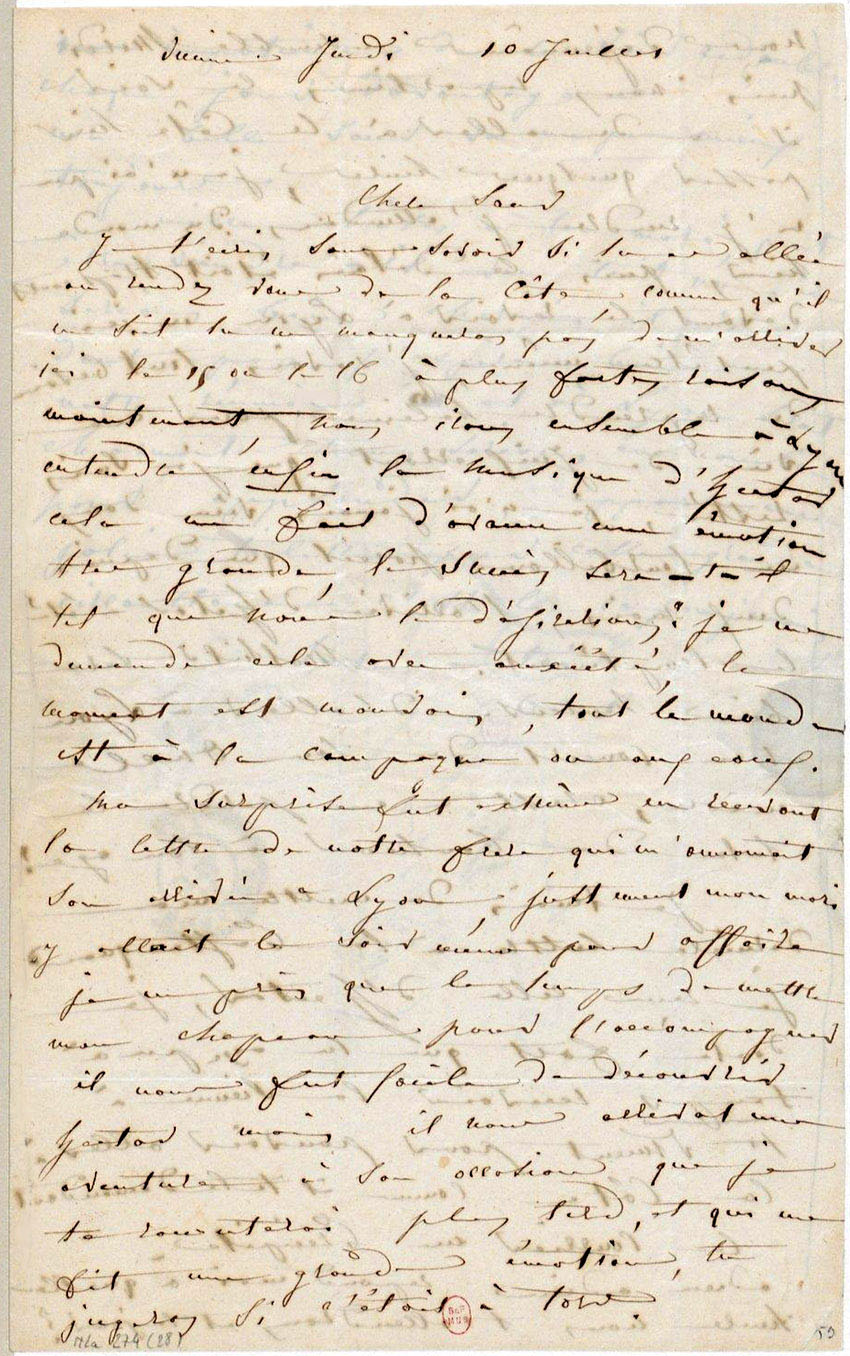 Vienne Jeudi 10 Juillet
Chere Soeur
Je t'écris sans savoir si tu es allée
au rendez vous de la Côte, comme qu'il
en soit tu ne manqueras pas de m'arriver
ici le 15 ou le 16 à plus fortes raisons
maintenant, nous irons ensemble à Lyon
entendre enfin la musique d'Hector
cela me fait d'avance une émotion
tres grande, le succès sera-t-il
tel que nous le désirions; je me
demande cela avec anxiété, le
moment est mauvais, tout le monde
est à la campagne ou aux eaux.
Ma surprise fut extrême en recevant
la lettre de notre frere qui m'annoncait
son arrivée a Lyon, justement mon mari
y allait le soir même pour affaire
je ne pris que le temps de mettre
mon chapeau pour l'accompagner
il nous fut facile de découvrir
Hector mais il nous arrivat une
aventure à son occasion que je
te raconterai plus tard, et qui me
fit une grande émotion, tu
jugeras si c'étoit à tord
Nla 274 (28)
BnF
MUS
59